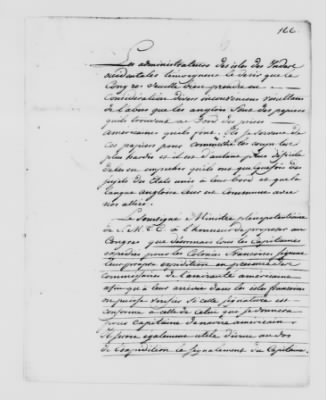 166.
Les administrateurs des isles des Indes
occidentales temoignent le desir que le
Congrès veuille bien prendre en
Considération divers inconveniens resultans
de l'abus que les anglois font des papiers
qu'ils trouvent a Bord des prises
americaine qu'ils font. Ils se servent de
Ces papiers pour commettre les coups les
plus hardis et il est d'autant plus difficile
de les en empecher qu'ils ont quelquefois des
sujets des Etats unis a leur bord et que la
langue angloise leur est Commune avec
nos alliés.
Le soussigné Ministre plenipotentiaire
de S. M. T. C. a l'honneur de proposer au
Congrès que desormais tous les Capitaines
expediés pour les Colonies francoises signent
leur propre expedition en presence des
Commissaires de l'amirauté américaine
afin qu'a leur arrivée dans les isles francoises
on puisse verifier si cette signature est
conforme à celle de celui qui se donnera
pour Capitaine du navire americain.
Il seroit également utile d'ecrire au dos
de l'expedition le signalement du Capitaine.